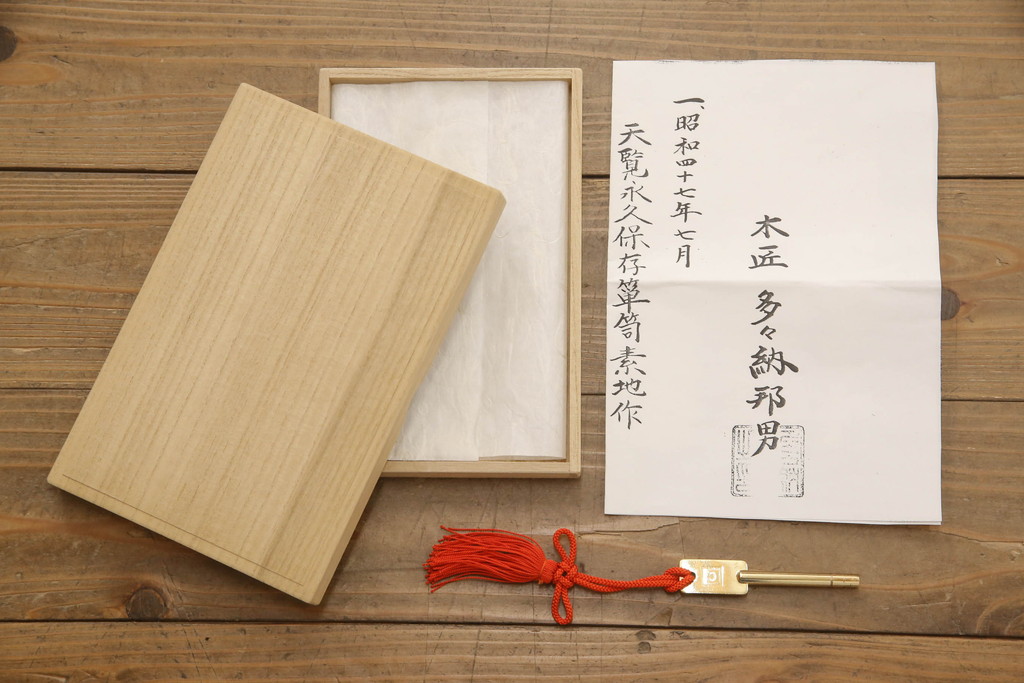 木匠 多々納邦男
一、昭和四十七年七月
天覧永久保存簞笥素地作